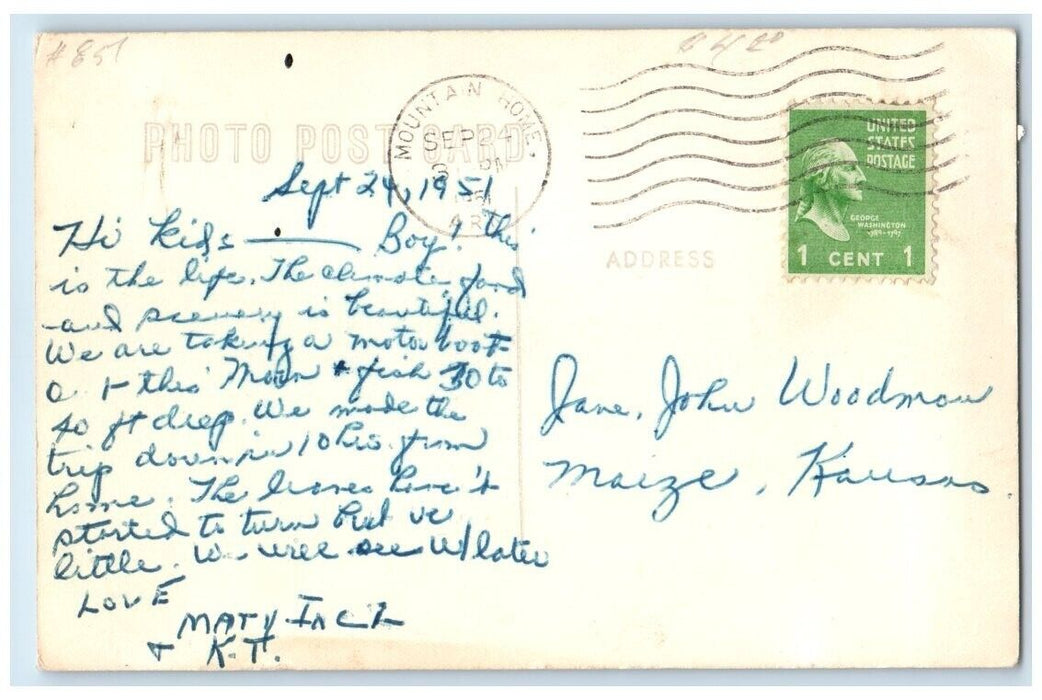 # 851
MOUNTAIN HOME,
SEP
PM
1951
ARK
UNITED
STATES
POSTAGE
GEORGE
WASHINGTON
1789-1797
1 CENT 1
PHOTO POST CARD
ADDRESS
Sept 24, 1951
Hi Kids — Boy! this
is the life. The climate, food
and scenery is beautiful.
We are taking a motor boat
this Morn + fish 30 to
40 ft deep. We made the
trip down in 10 hrs from
home. The leaves haven't
started to turn but ve
little. We will see U later
LOVE
MARY
+ K.T.
Jane, John Woodmow
Maize, Kansas